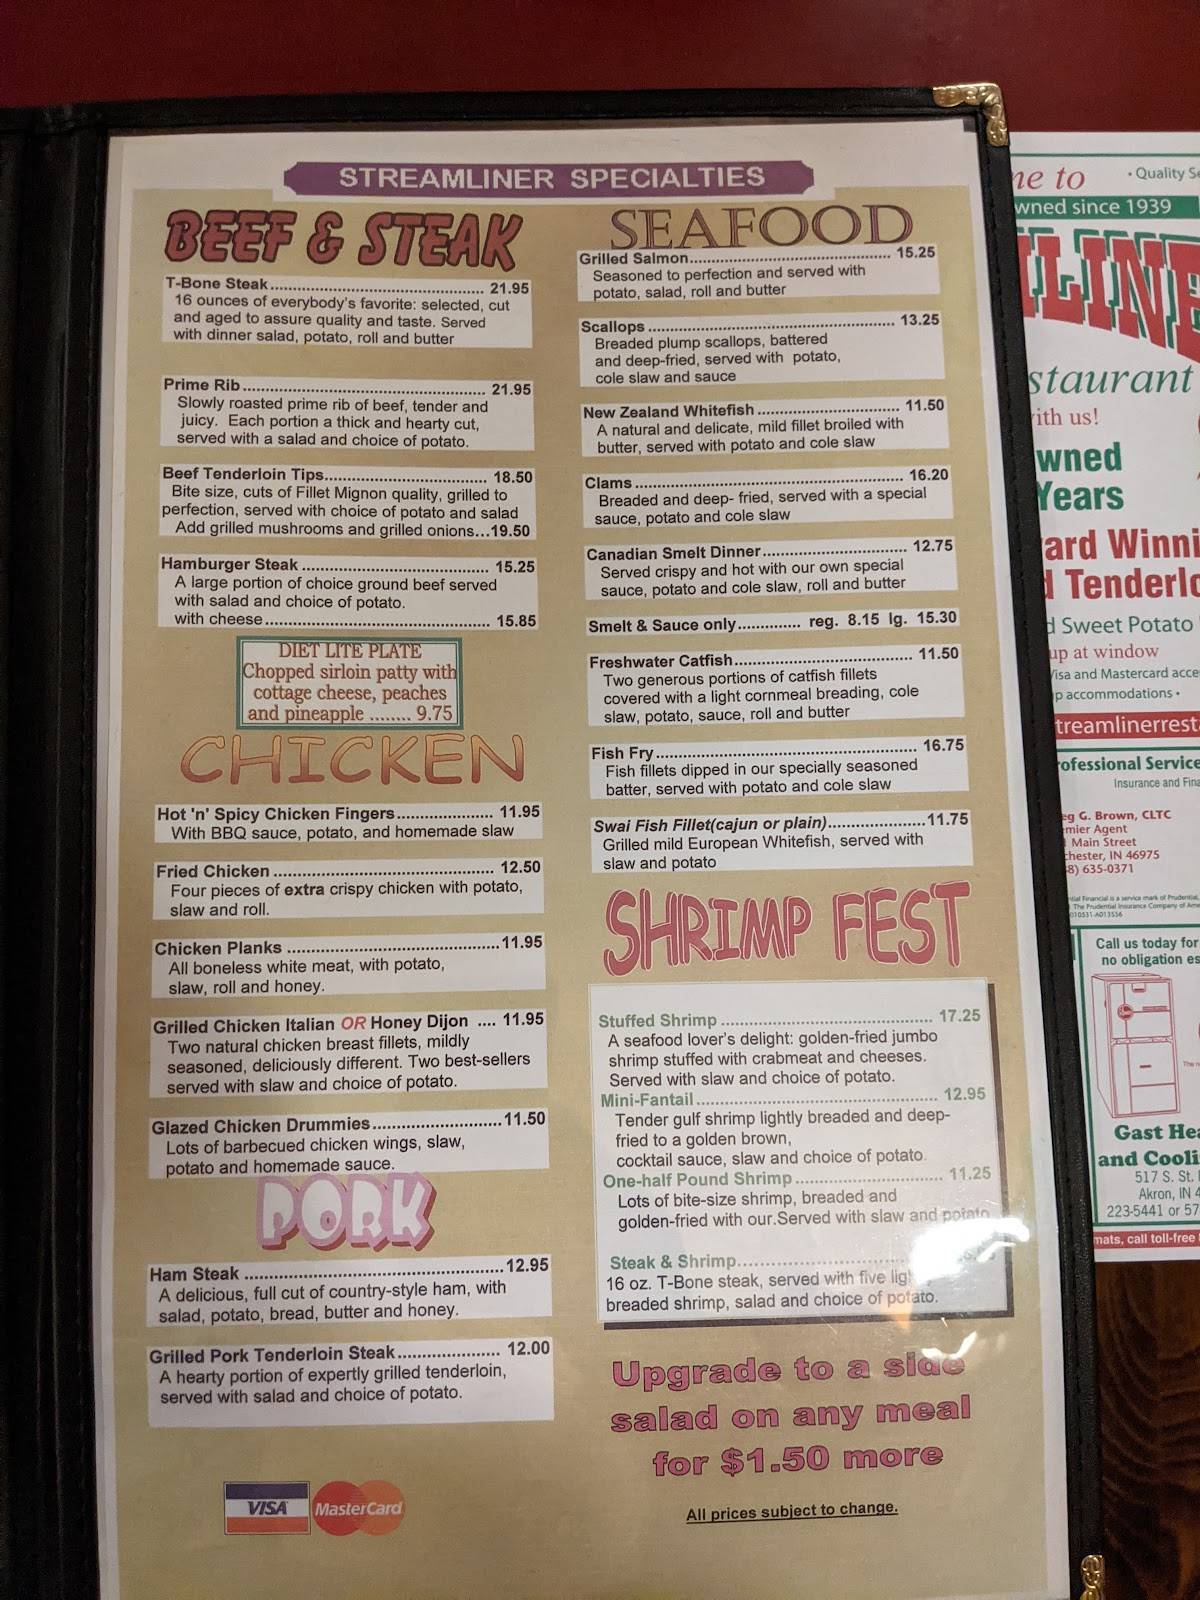 STREAMLINER SPECIALTIES
BEEF & STEAK
T-Bone Steak.................................................. 21.95
16 ounces of everybody's favorite: selected, cut
and aged to assure quality and taste. Served
with dinner salad, potato, roll and butter
Prime Rib........................................................ 21.95
Slowly roasted prime rib of beef, tender and
juicy. Each portion a thick and hearty cut,
served with a salad and choice of potato.
Beef Tenderloin Tips..................................... 18.50
Bite size, cuts of Fillet Mignon quality, grilled to
perfection, served with choice of potato and salad
Add grilled mushrooms and grilled onions...19.50
Hamburger Steak .......................................... 15.25
A large portion of choice ground beef served
with salad and choice of potato.
with cheese................................................... 15.85
DIET LITE PLATE
Chopped sirloin patty with
cottage cheese, peaches
and pineapple ........ 9.75
CHICKEN
Hot 'n' Spicy Chicken Fingers...................... 11.95
With BBQ sauce, potato, and homemade slaw
Fried Chicken ................................................. 12.50
Four pieces of extra crispy chicken with potato,
slaw and roll.
Chicken Planks ................................................11.95
All boneless white meat, with potato,
slaw, roll and honey.
Grilled Chicken Italian OR Honey Dijon .... 11.95
Two natural chicken breast fillets, mildly
seasoned, deliciously different. Two best-sellers
served with slaw and choice of potato.
Glazed Chicken Drummies.............................11.50
Lots of barbecued chicken wings, slaw,
potato and homemade sauce.
PORK
Ham Steak .........................................................12.95
A delicious, full cut of country-style ham, with
salad, potato, bread, butter and honey.
Grilled Pork Tenderloin Steak....................... 12.00
A hearty portion of expertly grilled tenderloin,
served with salad and choice of potato.
VISA MasterCard
SEAFOOD
Grilled Salmon............................................. 15.25
Seasoned to perfection and served with
potato, salad, roll and butter
Scallops ....................................................... 13.25
Breaded plump scallops, battered
and deep-fried, served with potato,
cole slaw and sauce
New Zealand Whitefish ................................ 11.50
A natural and delicate, mild fillet broiled with
butter, served with potato and cole slaw
Clams ............................................................ 16.20
Breaded and deep- fried, served with a special
sauce, potato and cole slaw
Canadian Smelt Dinner................................ 12.75
Served crispy and hot with our own special
sauce, potato and cole slaw, roll and butter
Smelt & Sauce only.............. reg. 8.15 lg. 15.30
Freshwater Catfish........................................ 11.50
Two generous portions of catfish fillets
covered with a light cornmeal breading, cole
slaw, potato, sauce, roll and butter
Fish Fry.......................................................... 16.75
Fish fillets dipped in our specially seasoned
batter, served with potato and cole slaw
Swai Fish Fillet(cajun or plain)......................11.75
Grilled mild European Whitefish, served with
slaw and potato
SHRIMP FEST
Stuffed Shrimp ............................................... 17.25
A seafood lover's delight: golden-fried jumbo
shrimp stuffed with crabmeat and cheeses.
Served with slaw and choice of potato.
Mini-Fantail ...................................................... 12.95
Tender gulf shrimp lightly breaded and deep-
fried to a golden brown,
cocktail sauce, slaw and choice of potato.
One-half Pound Shrimp................................. 11.25
Lots of bite-size shrimp, breaded and
golden-fried with our.Served with slaw and potato
Steak & Shrimp.....................................
16 oz. T-Bone steak, served with five
breaded shrimp, salad and choice of potato.
Upgrade to a side
salad on any meal
for $1.50 more
All prices subject to change.
ne to
• Quality Se
wned since 1939
LINE
staurant
with us!
wned
Years
ard Winni
d Tenderlo
d Sweet Potato
up at window
Visa and Mastercard acce
p accommodations •
treamlinerresta
rofessional Service
Insurance and Fina
eg G. Brown, CLTC
emier Agent
Main Street
chester, IN 46975
8) 635-0371
ntial Financial is a service mark of Prudential,
The Prudential Insurance Company of Ame
010531-A013556
Call us today for
no obligation es
Gast Hea
and Cooli
517 S. St.
Akron, IN 4
223-5441 or 57
mats, call toll-free